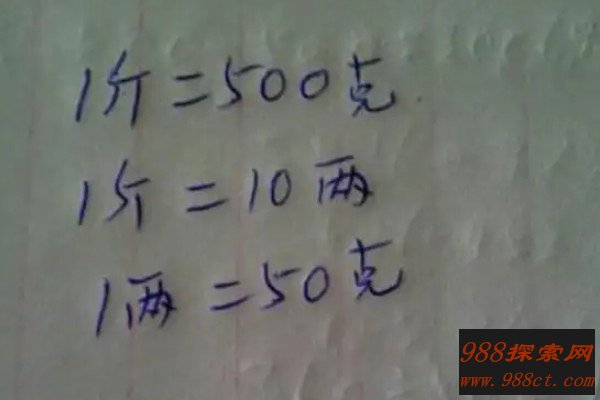 1斤=500克
1斤=10两
1两=50克
988探索网
www.988ct.com